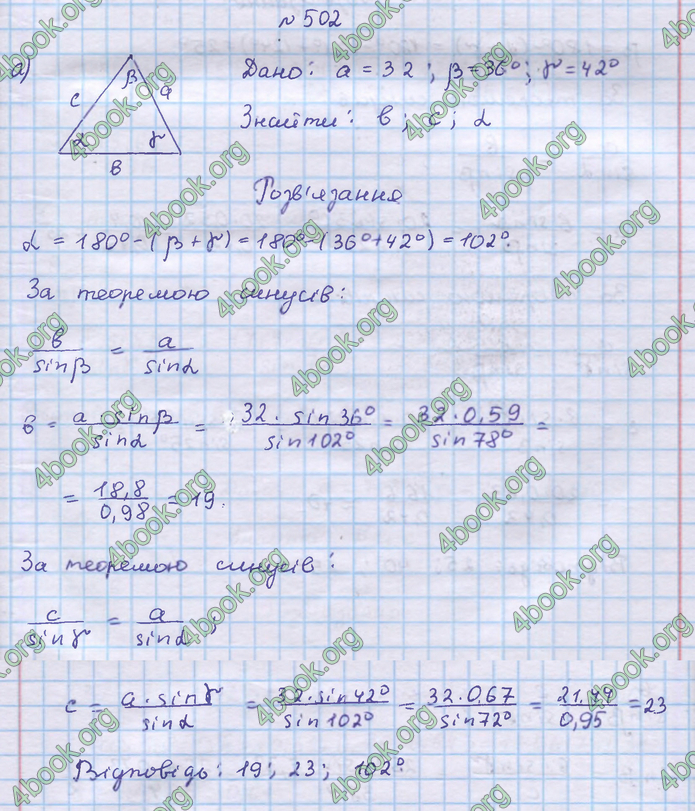 № 502
а)
β
c
a
α
γ
в
Дано: a = 32; β = 36°; γ = 42°
Знайти: в; c; α
Розв'язання
α = 180° - (β + γ) = 180° - (36° + 42°) = 102°.
За теоремою синусів:
в/sinβ = a/sinα
в = a · sinβ/sinα = 32 · sin 36°/sin 102° = 32 · 0,59/sin 78° =
= 18,8/0,98 = 19.
За теоремою синусів:
c/sinγ = a/sinα ;
c = a · sinγ/sinα = 32 · sin 42°/sin 102° = 32 · 0,67/sin 72° = 21,44/0,95 = 23
Відповідь: 19; 23; 102°.
4book.org